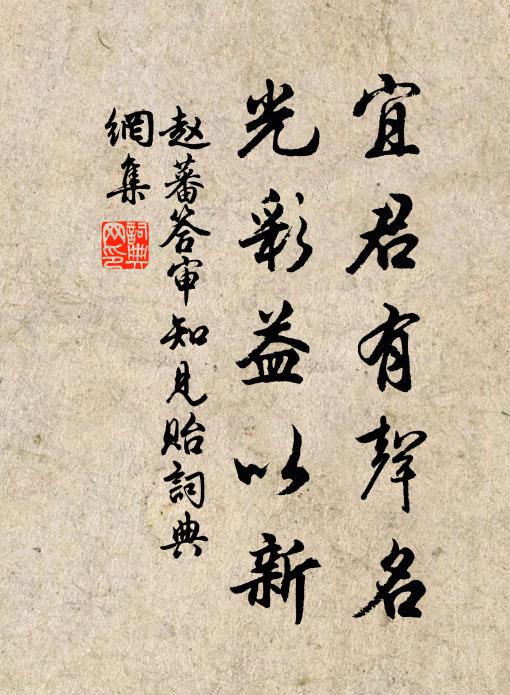 宜君有聲名
光彩益以新
赵蕃答审知見貽詞典
網集
詞典
网印